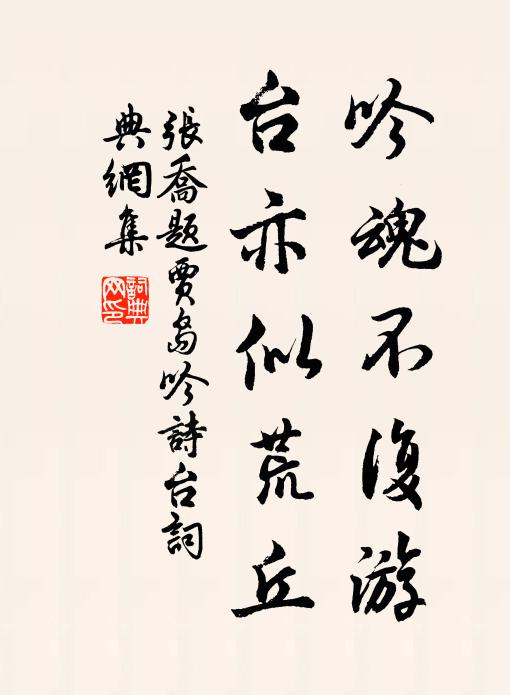 吟魂不復游
台亦似荒丘
張喬题賈島吟詩台詞
典網集
詞典
网印